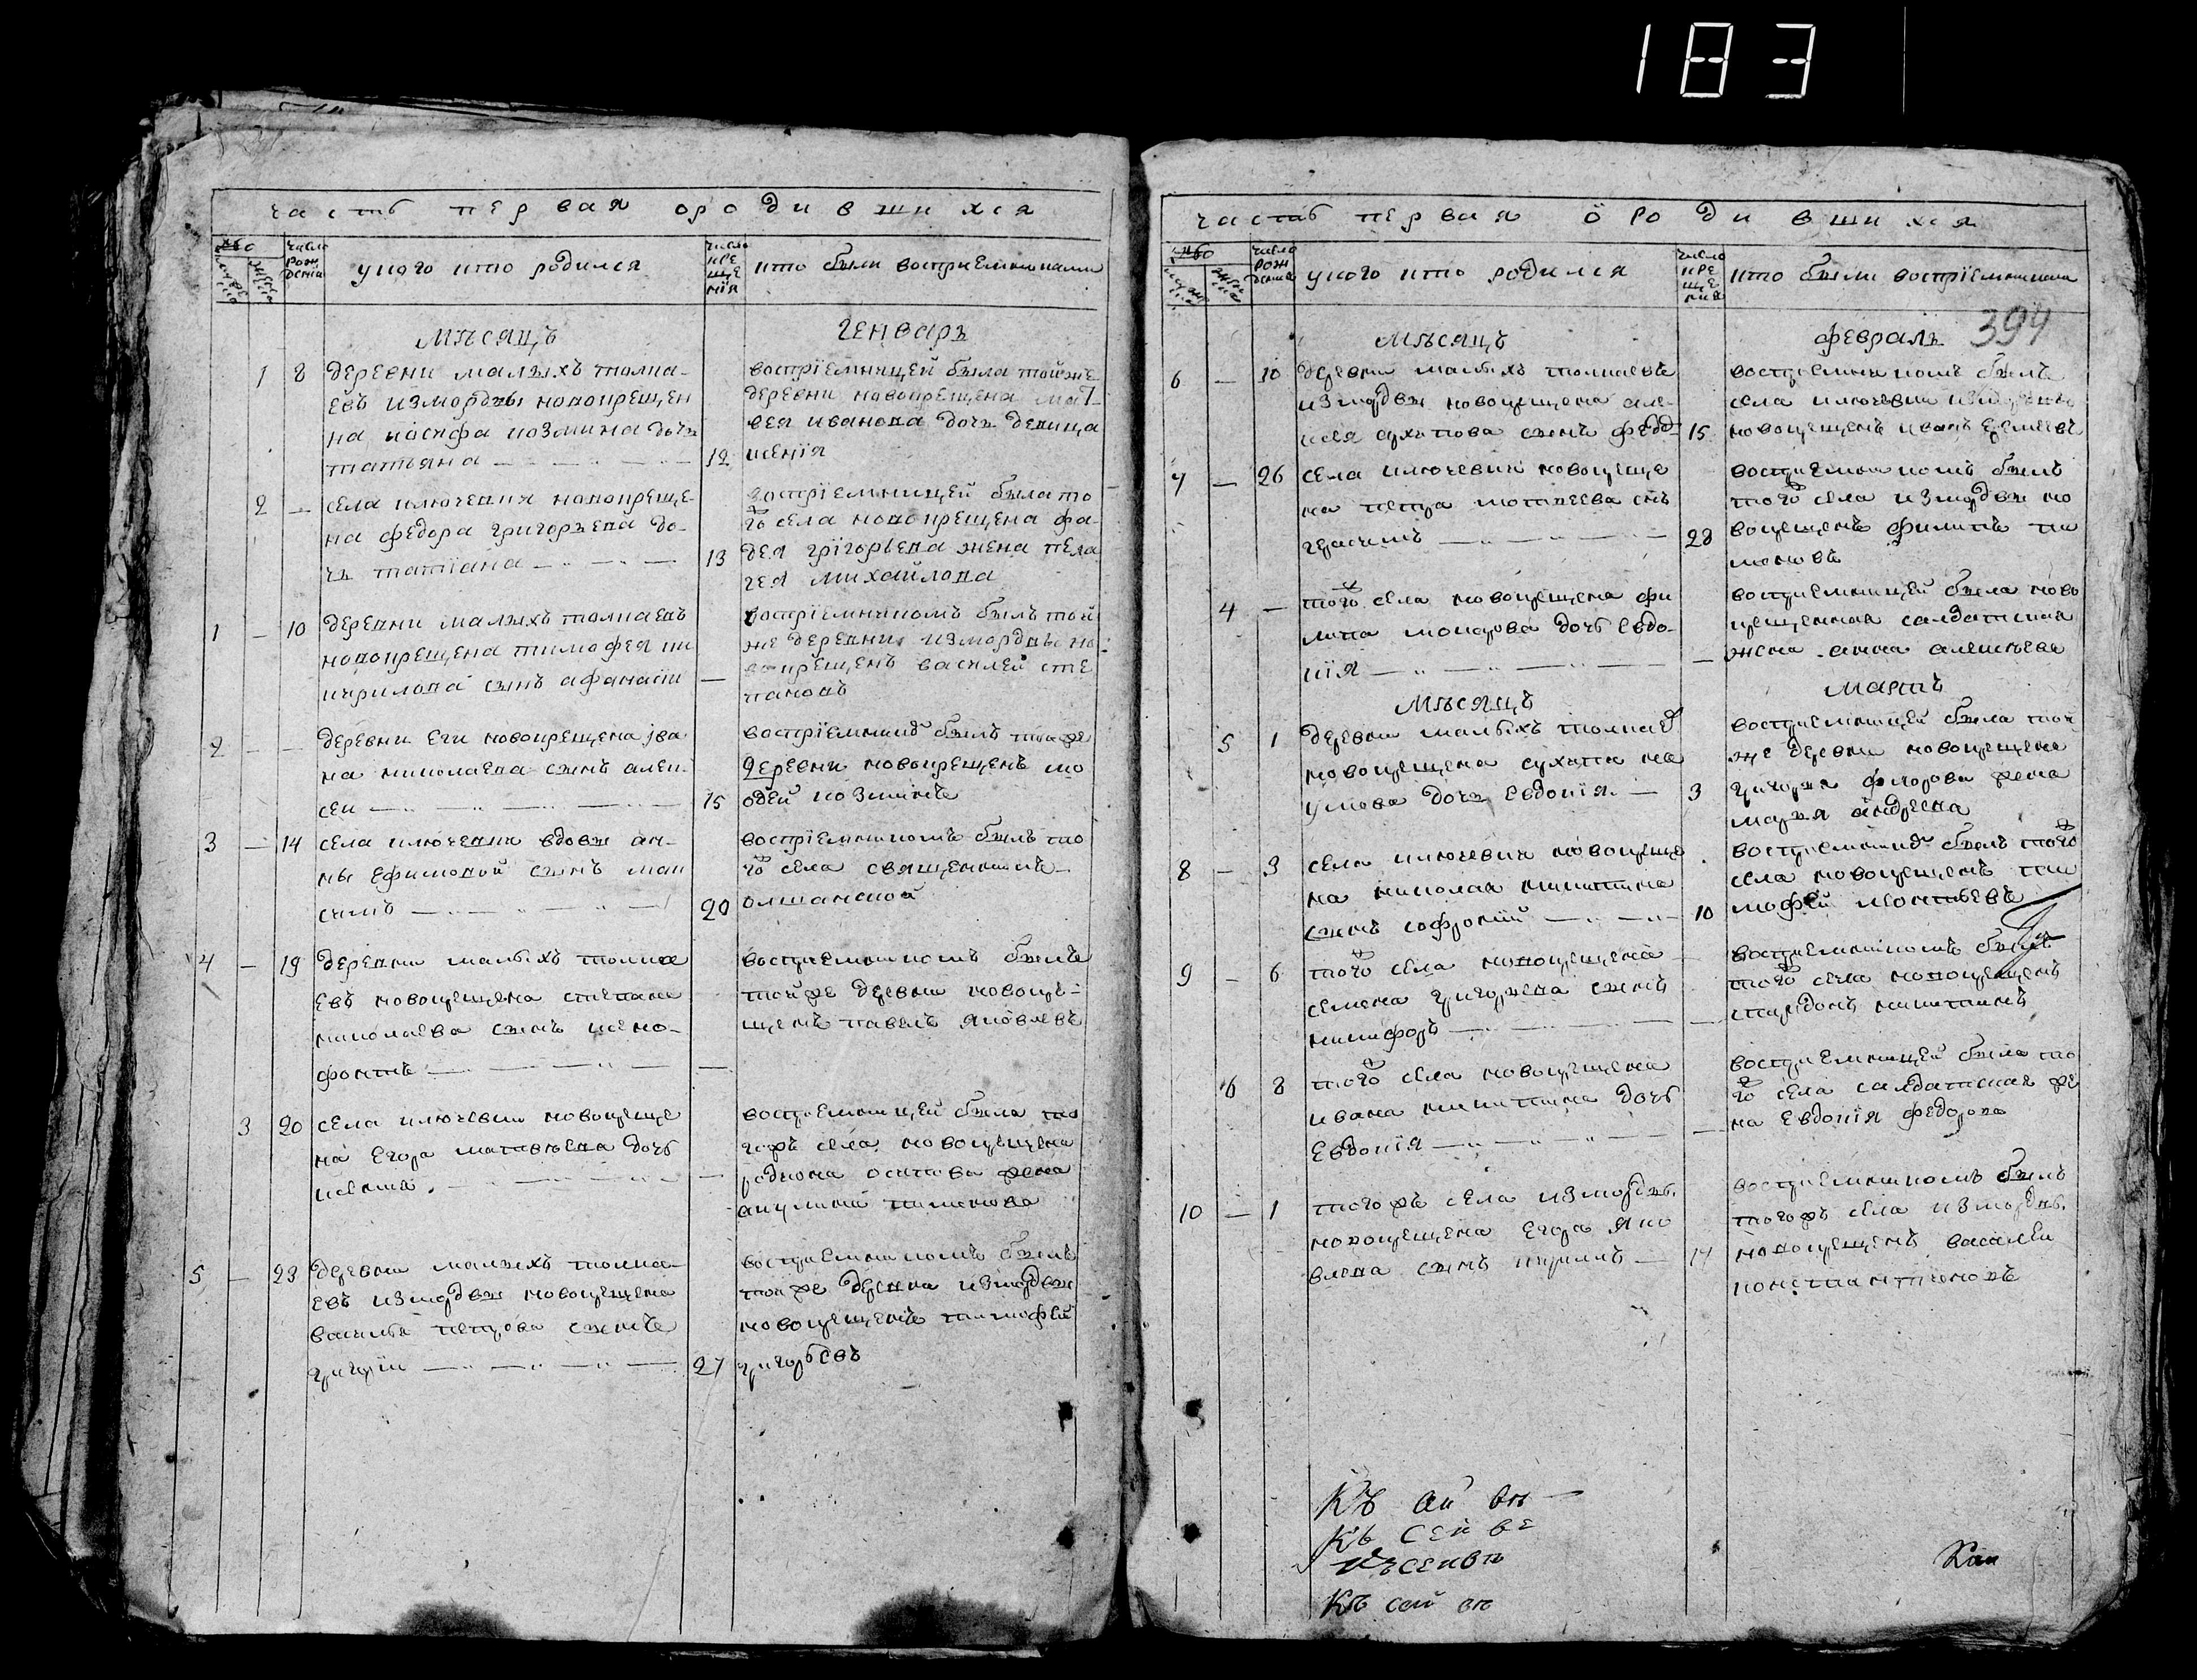 183
часть первая ородившихся
число рождения
у кого кто родился
число крещения
кто были восприемниками
мѣсяцъ
генварь
1 8 деревни малыхъ толка-
евъ измордвы новокрещен
на иосифа козмина дочь
татьяна 12
восприемницей была тойже
деревни новокрещена мат-
вея иванова дочь девица
ксенїя
2 — села ключевки новокреще-
на федора григорьева до-
чь татїана — 13
воспрїемницей была то
гѡ села новокрещена фа-
дея грїгорьева жена пела
гея михайлова
1 — 10 деревни малыхъ толкаевъ
новокрещена тимофея ки
кирилова сынъ афанасїи —
воспрїемникомъ былъ той
же деревни измордвы но-
вокрещенъ василей сте
пановъ
2 — — деревни еги новокрещена јва
на николаева сынъ алек-
сеи — 15
деревни новокрещенъ мо
одеи козминъ
3 — 14 села ключевки вдовы ан-
ны ефимовой сынъ мак
симъ — 20
воспрїемникомъ былъ то
гѡ села священникъ
олшанской
4 — 19 деревни малыхъ толка
евъ новокрещена степана
николаева сынъ ксено-
фонтъ — —
восприемникомъ былъ
тойже деревни новокре-
щенъ павелъ яковлевъ
3 20 села ключевки новокреще
на егора матвѣева дочь
ксения —
восприемницей была то
гожъ села новокрещена
родиона осипова жена
акулина пименова
5 — 23 деревни малыхъ толка-
евъ измордвы новокрещена
василья петрова сынъ
григорїи — 27
восприемникомъ былъ
тойже деревни измордвы
новокрещенъ тимофей
григорьевъ
часть первая ѡ родившихся
число рождения
у кого кто родился
число крещения
кто были воспрїемниками
394
мѣсяцъ
февраль
6 — 10 деревни малыхъ толкаевъ
измордвы новокрещена але-
ксея сухотова сынъ федо- 15
восприемникомъ былъ
села ключевки измордвы
новокрещенъ иванъ еремеевъ
7 — 26 села ключевки новокреще
на петра мотвеева снъ
герасимъ — 28
восприемникомъ былъ
тогѡ села измордвы но
вокрещенъ филипъ пи
меновъ
4 — тогѡ села новокрещена фи
липа мокшова дочь евдо-
кїя —
восприемницей была ново
крещенная салдатская
жена анна алексѣева
мѣсяцъ
мартъ
5 1 деревни малыхъ толкаев
новокрещена сухата на
умова дочь евдокїя — 3
восприемницей была той
же деревни новокрещена
григорья федорова жена
марья андреева
8 — 3 села ключевки новокреще
на николая никитина
сынъ софронїй — 10
восприемникѡ былъ тогѡ
села новокрещенъ ти
мофей леонтьевъ
9 — 6 тогѡ села новокрещена
семена григорьева сынъ
никифоръ —
восприемникомъ былъ
тогѡ села новокрещенъ
спиридонъ никитинъ
6 8 тогѡ села новокрещена
ивана никитина дочь
евдокїя —
восприемницей была то
гѡ села салдатская же
на евдокїя федорова
10 — 1 тогожъ села измордвы
новокрещена егора яко
влева сынъ кирилъ — 14
восприемникомъ былъ
тогожъ села измордвы
новокрещенъ василеи
констянтиновъ